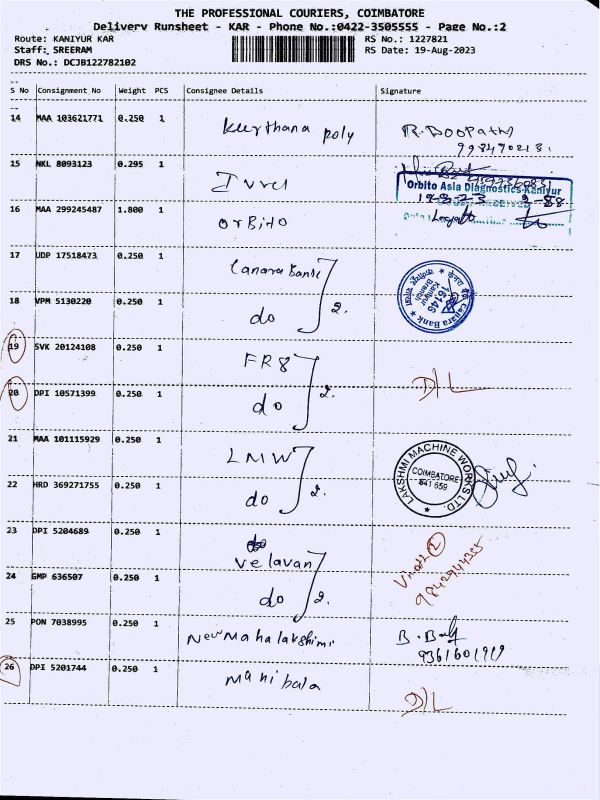 THE PROFESSIONAL COURIERS, COIMBATORE
Delivery Runsheet - KAR - Phone No.:0422-3505555 - Page No.:2
Route: KANIYUR KAR
RS No.: 1227821
Staff: SREERAM
RS Date: 19-Aug-2023
DRS No.: DCJB122782102
S No Consignment No Weight PCS Consignee Details Signature
14 MAA 103621771 0.250 1 Keerthana poly R. Boopathi
15 NKL 8093123 0.295 1
Orbito Asia Diagnostics-Kaniyur
16 MAA 299245487 1.800 1 orBito
17 UDP 17518473 0.250 1 Canara Bank
Canara Bank
Kaniyur
Branch
16146
18 VPM 5130220 0.250 1 do 2.
19 SVK 20124108 0.250 1 FR8
20 DPI 10571399 0.250 1 do 2. D/L
21 MAA 101115929 0.250 1 LMW
LAKSHMI MACHINE WORKS LTD.
COIMBATORE
641 659
22 HRD 369271755 0.250 1 do 2.
23 DPI 5204689 0.250 1 Velavan
9842944355
24 GMP 636507 0.250 1 do 2.
25 PON 7038995 0.250 1 New Mahalakshimi B.
26 DPI 5201744 0.250 1 Manibala D/L